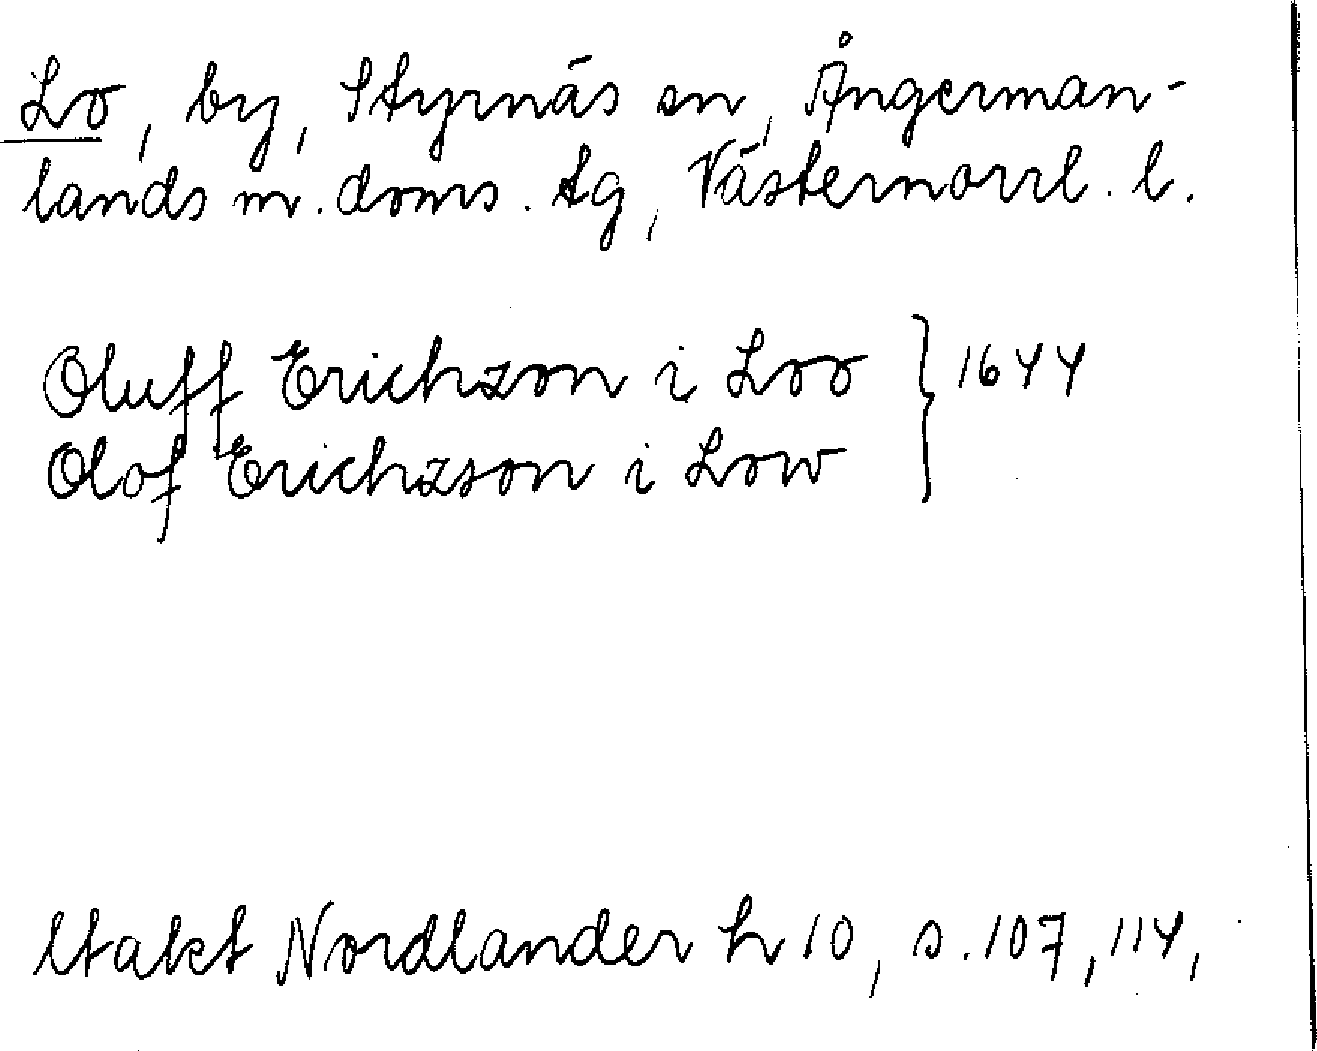 Lo, by, Styrnäs sn, Ångerman-
lands m. doms. tg, Västernorrl. l.
Oluff Erichzon i Loo } 1644
Olof Erichzson i Low
Utakt Nordlander h 10, s. 107, 114,